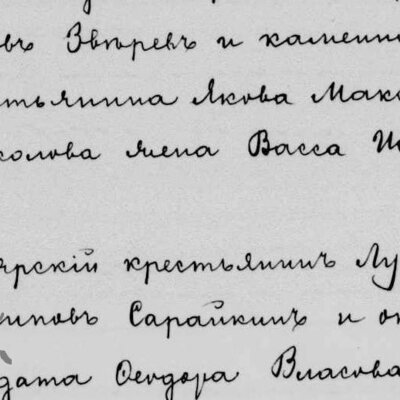 овъ Звѣревъ и каменн
стьянина Якова Макс
колова жена Васса И
ярскій крестьянинъ Лу
иповъ Сарайкинъ и о
дата Ѳеодора Власова